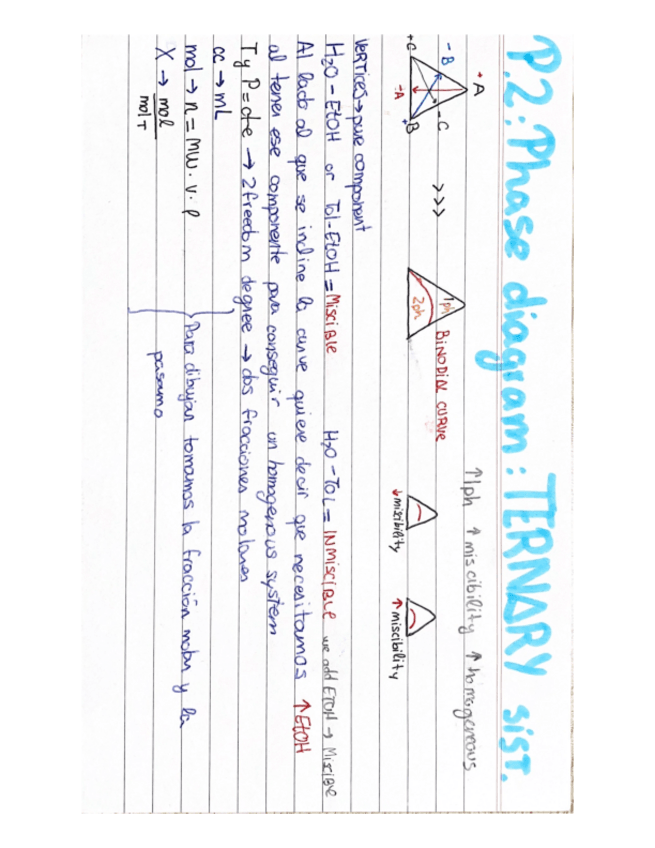 P.2: Phase diagram: TERNARY sist.
↑1ph ↑ miscibility ↑ homogeneous
+ A
- B
- C
+ C
- A
+ B
>>>
1ph
2ph
BINODIAL CURVE
↓ miscibility
↑ miscibility
VERTICES → pure component
H₂O - EtOH or Tol - EtOH = MISCIBLE H₂O - TOL = INMISCIBLE we add ETOH → Miscible
Al lado al que se incline la curve quiere decir que necesitamos ↑ EtOH
al tener ese componente para conseguir un homogenous system
T y P = cte → 2 freedom degree → dos fracciones molares
cc → mL
mol → n = MW · v · ρ
X → mol / mol T
Para dibujar tomamos la fracción molar y la
pasamo